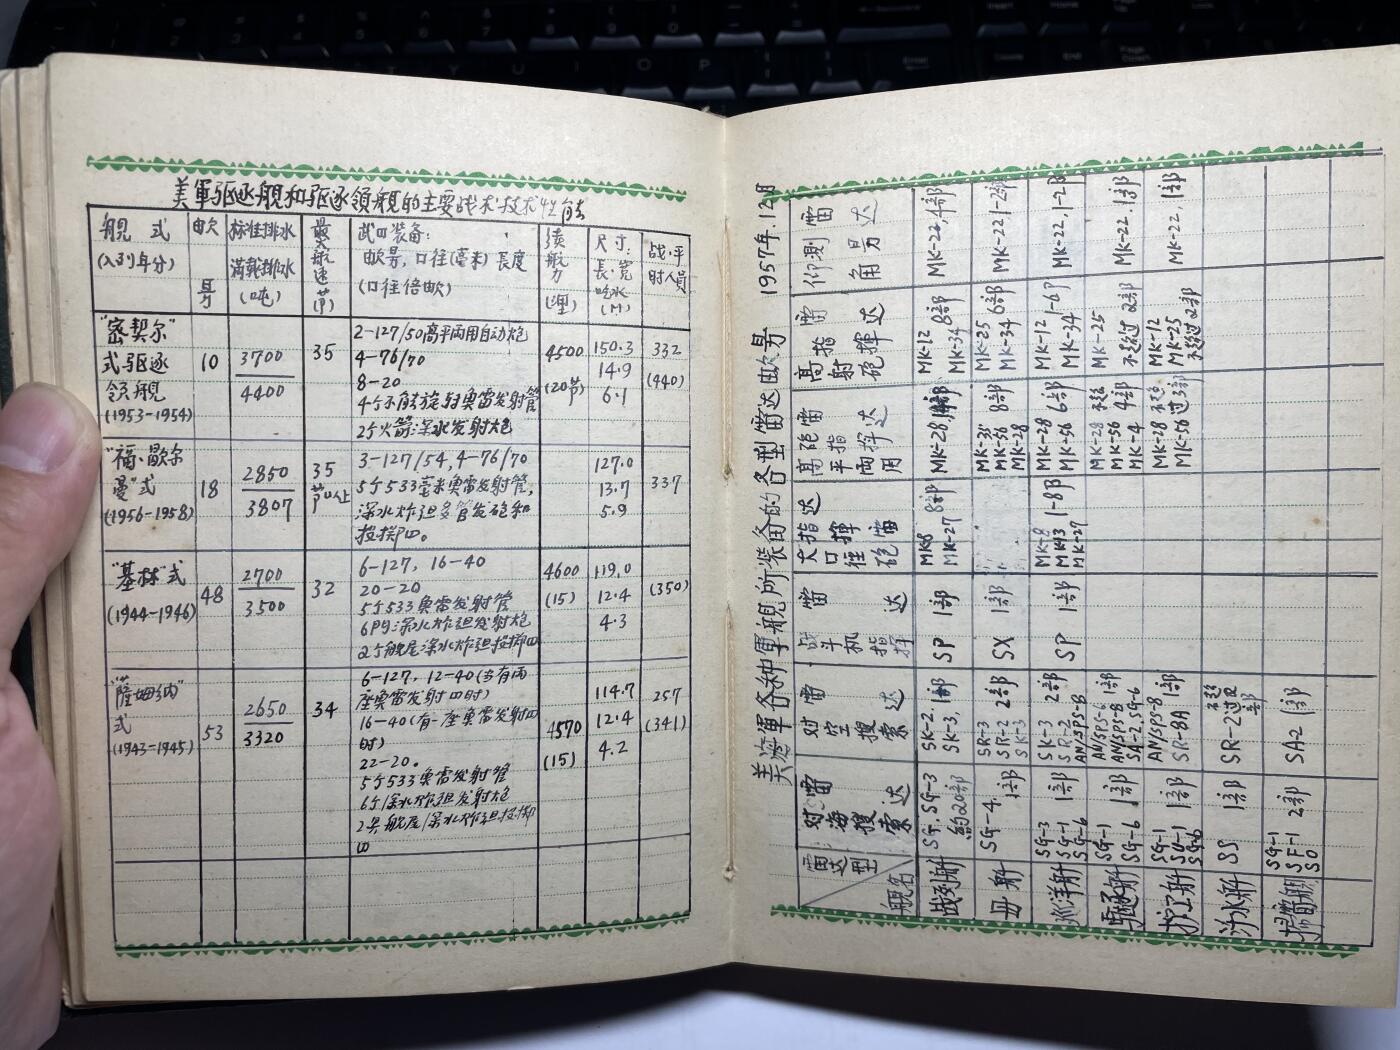 美軍驱逐舰和驱逐领舰的主要战术技术性能
舰 式
(入列年分)
標准排水
满載排水
(吨)
最大航速(节)
武口装备:
口径(毫米) 長度
(口径倍欤)
续航力(浬)
尺寸:
長·宽
吃水
(M)
战·平
时人員
"密契尔"
式驱逐
领舰
(1953-1954)
10
3700
4400
35
2-127/50高平両用自动炮
4-76/70
8-20
4个不能旋转奥雷发射管
2个火箭深水发射炮
4500
(20节)
150.3
14.9
6.1
332
(440)
"福·歇尔
曼"式
(1956-1958)
18
2850
3807
35
节以上
3-127/54, 4-76/70
5个533毫米奥雷发射管,
深水炸弹多管发砲和
投掷口。
127.0
13.7
5.9
337
"基林"式
(1944-1946)
48
2700
3500
32
6-127, 16-40
20-20
5个533奥雷发射管
6門深水炸弹发射炮
2个舰尾深水炸弹投掷口
4600
(15)
119.0
12.4
4.3
(350)
"薩姆纳"
式
(1943-1945)
53
2650
3320
34
6-127, 12-40(当有両
座奥雷发射口时)
16-40(有一座奥雷发射口
时)
22-20。
5个533奥雷发射管
6个深水炸弹发射炮
2条舰尾深水炸弹投掷
口
4570
(15)
114.7
12.4
4.2
257
(341)
美海軍各种軍舰所装备的各型雷达欤号 1957年.12月
雷达型
舰名
对海搜索雷达
对空搜索雷达
战斗机指挥雷达
大口径砲指揮雷达
高平両用砲指揮雷达
高射砲指揮雷达
仰測角雷达
战列舰
SG, SG-3
約20部
SK-2
SK-3, 1部
SP 1部
MK8
MK-27 8部
MK-28,
MK-12
MK-34 8部
MK-22, 4部
母舰
SG-4. 1部
SR-3
SR-2
SK-3
2部
SX 1部
MK-35
MK-56
MK-28
8部
MK-25
MK-34 6部
MK-22, 1-2部
巡洋舰
SG-3
SG-1
SG-6
1部
SK-3
SR-2
AN/SPS-8
2部
SP 1部
MK-8
MK13
MK-27
1-8部
MK-28
MK-56
6部
MK-12
MK-34
1-6P
MK-22, 1-2部
驱逐舰
SG-1
SG-6
1部
AN/SPS-6
AN/SPS-8
SA-2, SG-6
1部
MK-28
MK-56
MK-4
4部
MK-25
不超过2部
MK-22, 1部
护卫舰
SG-1
SU-1
SG-6
1部
AN/SPS-8
SR-8A
1部
MK-28
MK-56
不超过3部
MK-12
MK-25
不超过2部
MK-22, 1部
潜水舰
SS 1部
SR-2
掃雷舰
SG-1
SF-1
SO
2部
SA-2 1部